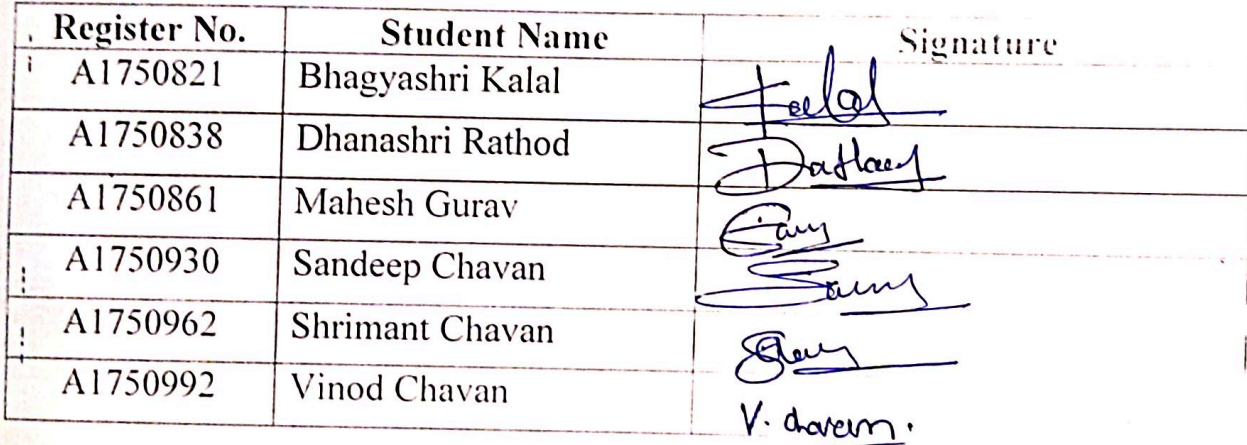 Register No. Student Name Signature
A1750821 Bhagyashri Kalal
A1750838 Dhanashri Rathod
A1750861 Mahesh Gurav
A1750930 Sandeep Chavan
A1750962 Shrimant Chavan
A1750992 Vinod Chavan V. Chavan.